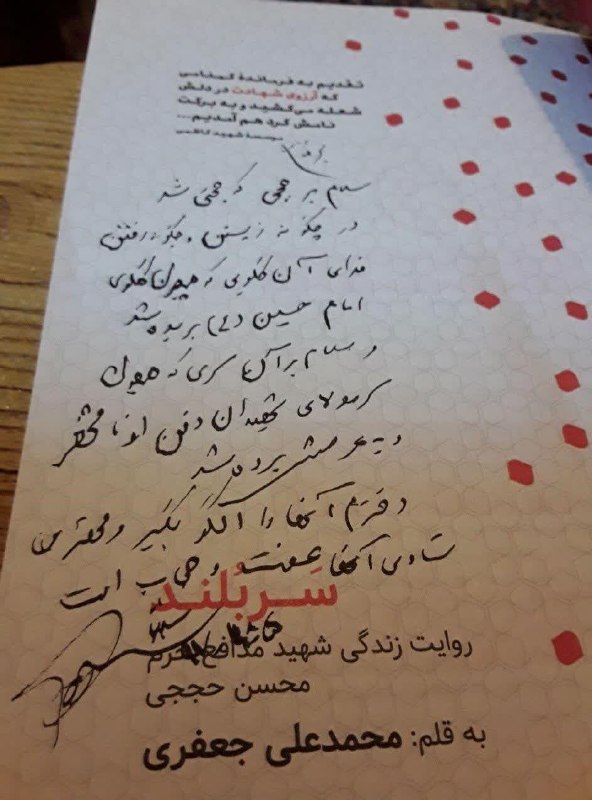 تقدیم به فرماندهٔ گمنامی
که آرزوی شهادت در دلش
شعله می‌کشید و به برکت
نامش گرد هم آمدیم...
موسسه شهید کاظمی
سلام بر حججی که حجتی شد
در چگونه زیستن و چگونه رفتن
فدای آن گلویی که همچون گلوی
امام حسین (ع) بریده شد
و سلام بر آن سری که همچون
سر مولای شهیدان دفن او نامحقق
و به عرش برده شد
دخترم آنها را الگو بگیر و مهمترین
شادی آنها عفت و حجاب است
سربُلند
روایت زندگی شهید مدافع حرم
محسن حججی
به قلم: محمدعلی جعفری